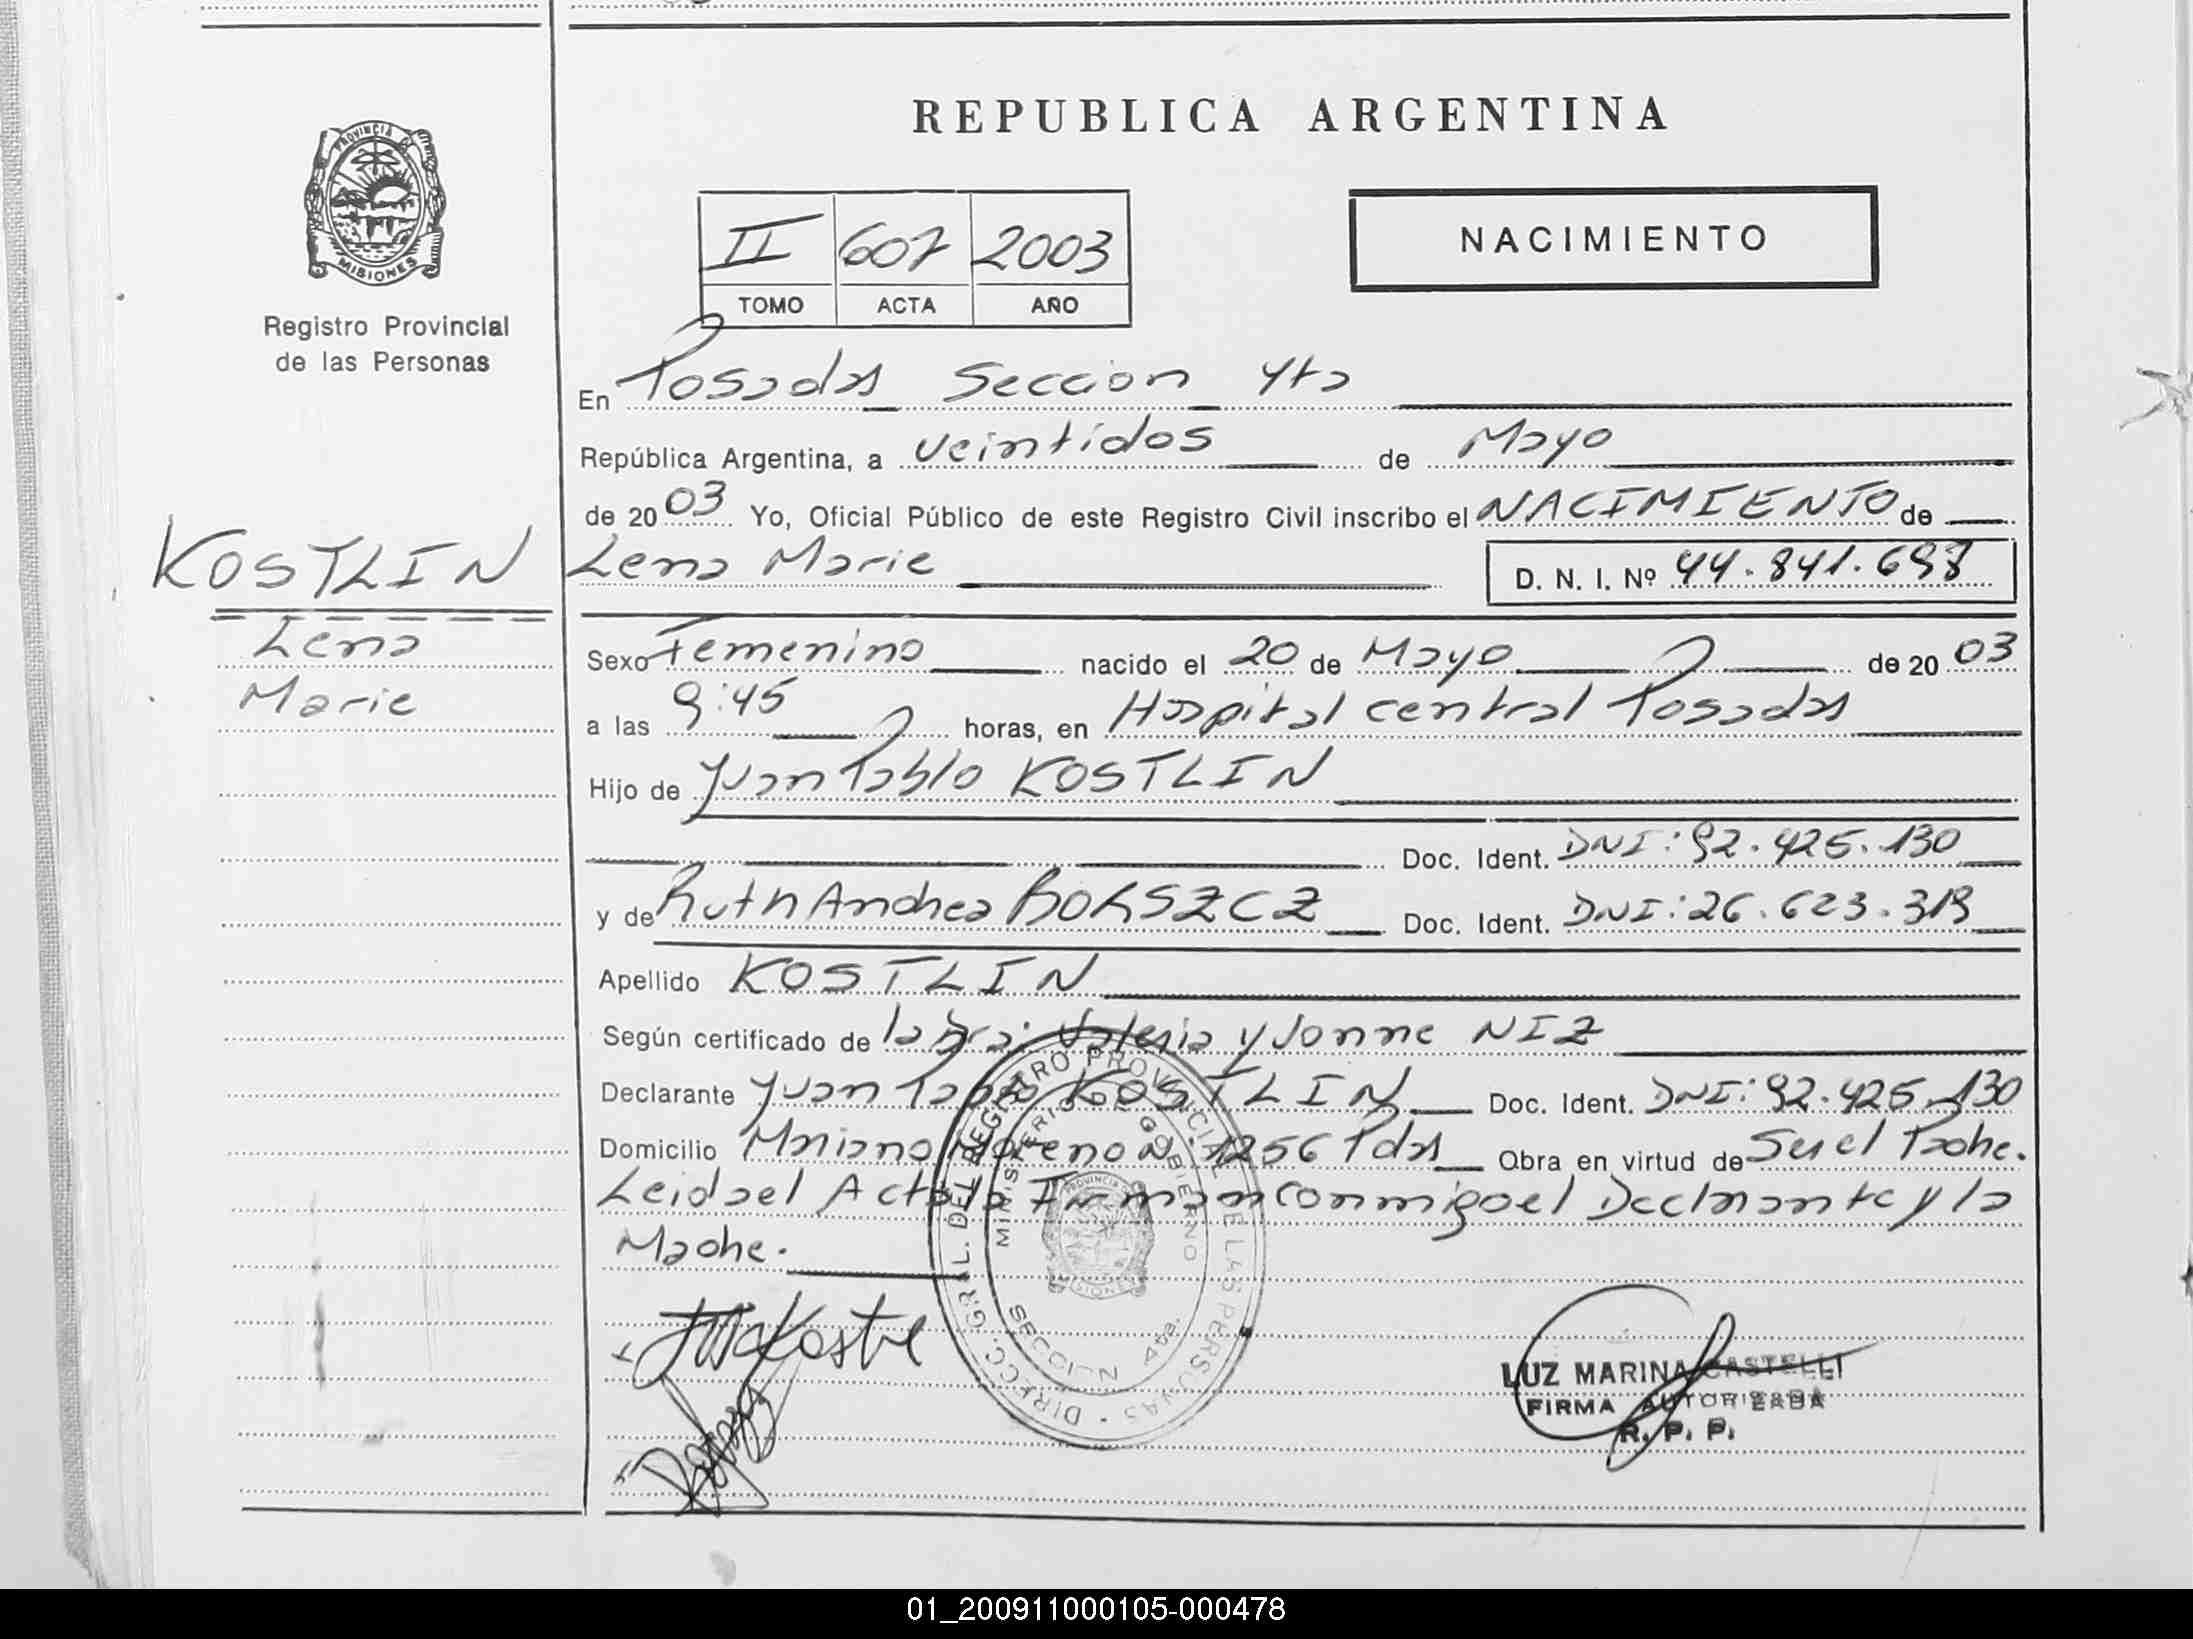 REPUBLICA ARGENTINA
PROVINCIA
MISIONES
Registro Provincial
de las Personas
II 607 2003
TOMO ACTA AÑO
NACIMIENTO
En Posadas Seccion 4ta
República Argentina, a veintidos de Mayo
de 2003 Yo, Oficial Público de este Registro Civil inscribo el NACIMIENTO de
KOSTLIN
Lena
Marie
Lena Marie D. N. I. Nº 44.841.698
Sexo Femenino nacido el 20 de Mayo de 2003
a las 9:45 horas, en Hospital central Posadas
Hijo de Juan Pablo KOSTLIN
Doc. Ident. DNI: 92.425.130
y de Ruth Andrea BORSZCZ Doc. Ident. DNI: 26.623.319
Apellido KOSTLIN
Según certificado de la Dra: Valeria Yvonne NIZ
Declarante Juan Pablo KOSTLIN Doc. Ident. DNI: 92.425.130
Domicilio Mariano Moreno Nº 1256 Pdas Obra en virtud de Ser el Padre.
Leida el Acta la Firman conmigo el Declarante y la
Madre.
DIRECC. GRAL. DEL REGISTRO PROVINCIAL DE LAS PERSONAS
MINISTERIO DE GOBIERNO
SECCION 4ta.
LUZ MARINA CASTELLI
FIRMA AUTORIZADA
R. P. P.
01_200911000105-000478